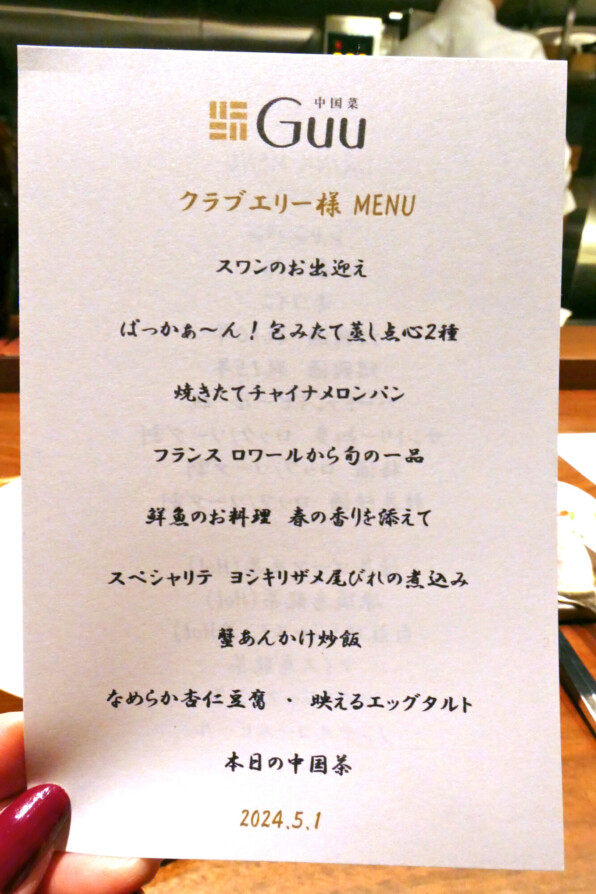 中国菜
Guu
クラブエリー様 MENU
スワンのお出迎え
ばっかぁ〜ん！包みたて蒸し点心2種
焼きたてチャイナメロンパン
フランス ロワールから旬の一品
鮮魚のお料理 春の香りを添えて
スペシャリテ ヨシキリザメ尾びれの煮込み
蟹あんかけ炒飯
なめらか杏仁豆腐 ・ 映えるエッグタルト
本日の中国茶
2024.5.1